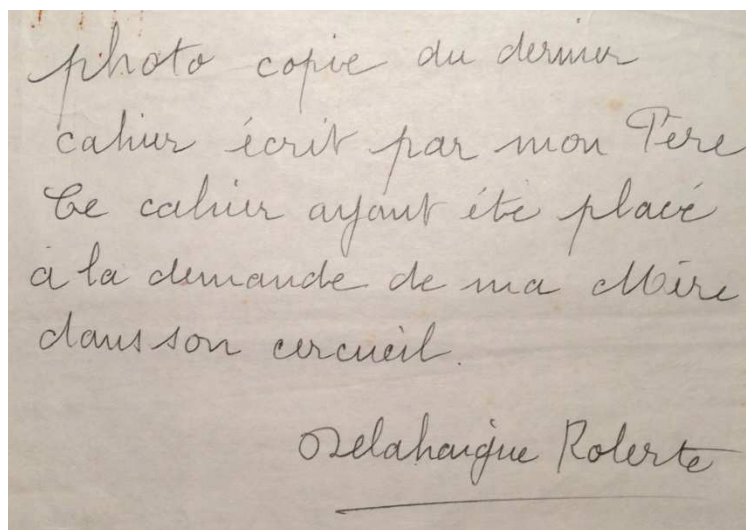 photo copie du dernier
cahier écrit par mon Père
Ce cahier ayant été placé
à la demande de ma Mère
dans son cercueil.
Delahaigue Roberte